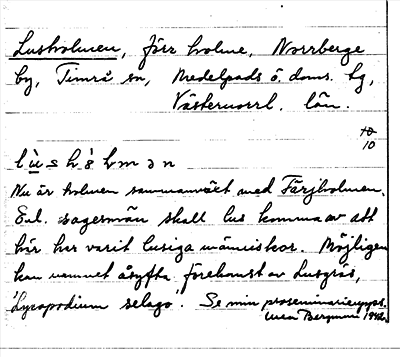 Lusholmen, förr holme, Norrberge
by, Timrå sn, Medelpads ö. doms. hg,
Västernorrl. län.
10
10
lùshòlmən
Nu är holmen sammanväxt med Färjholmen.
Enl. sagesmän skall lus komma av att
här har varit lusiga människor. Möjligen
kan namnet åsyfta förekomst av Lusgräs,
"Lycopodium selago". Se min proseminarieupps.
1942.